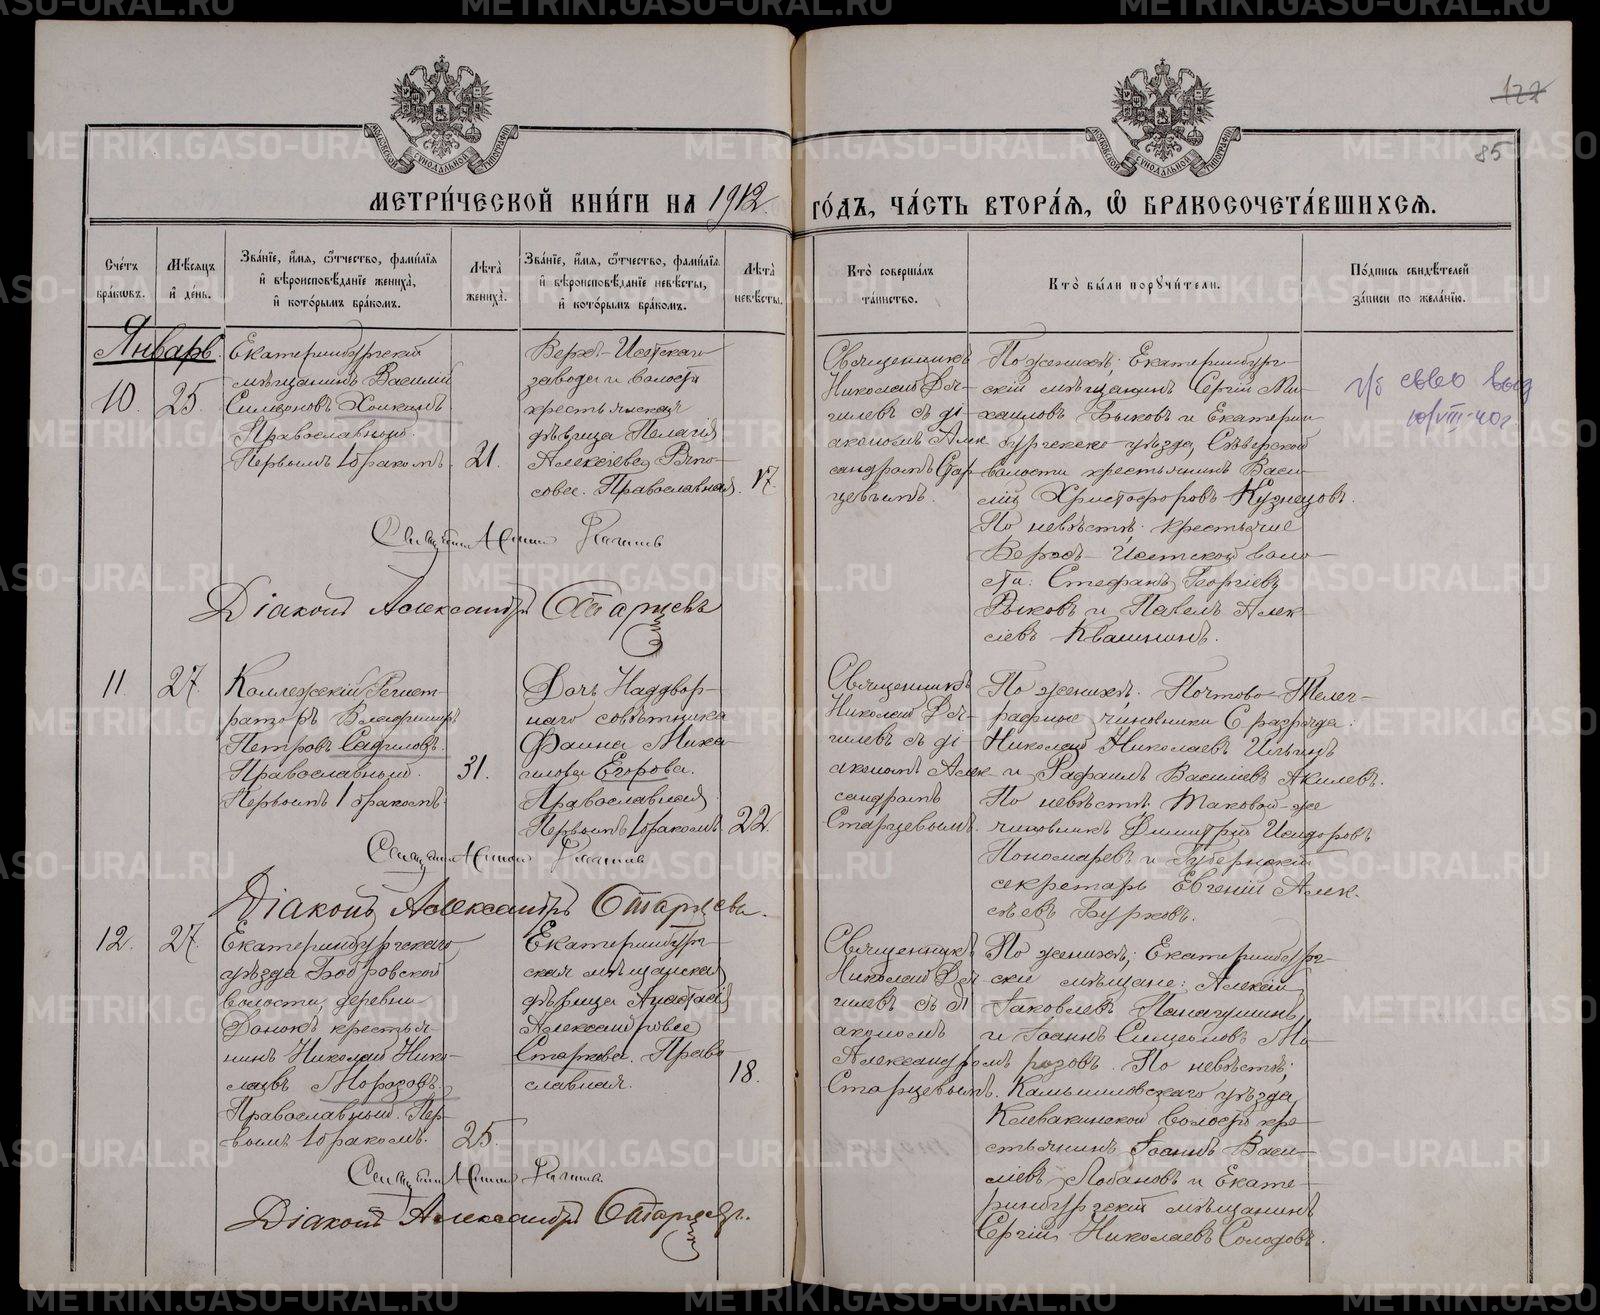 МЕТРИ́ЧЕСКОЙ КНИ́ГИ НА 1912 ГО́ДЪ, ЧА́СТЬ ВТОРА́Я, Ѽ БРАКОСОЧЕТА́ВШИХСЯ.
122
85
Сче́тъ бра́ковъ.
Мѣ́сяцъ и҆ де́нь.
Зва́нїе, и҆́мя, ѻ҆́тчество, фамѝлїя и҆ вѣроисповѣ́данїе жениха̀, и҆ кото́рымъ бра́комъ.
Лѣ́та жениха̀.
Зва́нїе, и҆́мя, ѻ҆́тчество, фамѝлїя и҆ вѣроисповѣ́данїе невѣ́сты, и҆ кото́рымъ бра́комъ.
Лѣ́та невѣ́сты.
Кто̀ соверша́лъ та́инство.
Кто̀ бы́ли порꙋчи́тели.
По́дпись свидѣ́телей за́писи по жела́нїю.
Январь
10.
25.
Екатеринбургскій
мѣщанинъ Василій
Симеоновъ Хомкинъ
Православный.
Первымъ 1 бракомъ.
21.
Верхъ-Исетскаго
завода и волости
крестьянская
дѣвица Пелагія
Алексіева
Православная.
17.
Священникъ
Николай
съ ді-
акономъ Алек
сандромъ Стар-
цевымъ.
По женихѣ; Екатеринбург-
скій мѣщанинъ Сергій Ми-
хаиловъ Быковъ и Екатерин
бургскаго уѣзда, Сѣверской
волости крестьянинъ Васи-
лій Христофоровъ Кузнецовъ.
По невѣстѣ; крестьяне
Верхъ-Исетской воло-
сти: Стефанъ Георгіевъ
Рыковъ и Павелъ Алек-
сіевъ Квашнинъ.
10/VIII-40г
Діаконъ Александръ Старцевъ
11.
27.
Коллежскій Регист-
раторъ Владиміръ
Петровъ
Православный.
Первымъ 1 бракомъ.
31.
Дочь Надвор-
наго совѣтника
Фаина Миха-
илова Егорова.
Православная
Первымъ 1 бракомъ
22.
Священникъ
Николай
съ ді-
акономъ Алек
сандромъ
Старцевымъ.
По женихѣ; Почтово-Телег-
рафные чиновники 6 разряда:
Николай Николаевъ Ильинъ
и Рафаилъ Василіевъ Акилевъ.
По невѣстѣ таковой-же
чиновникъ Димитрій Исидоровъ
Пономаревъ и Губернскій
секретарь Евгеній Алек-
сѣевъ Бурковъ.
Діаконъ Александръ Старцевъ.
12.
27.
Екатеринбургскаго
уѣзда Бобровской
волости, деревни
крестья-
нинъ Николай Нико-
лаевъ Морозовъ.
Православный. Пер-
вымъ 1 бракомъ.
25.
Екатеринбург-
ская мѣщанская
дѣвица Анастасія
Александрова
Старкова. Право-
славная.
18.
Священникъ
Николай
съ ді
акономъ
Александромъ
Старцевымъ.
По женихѣ; Екатеринбург-
скіе мѣщане: Алексій
Іаковлевъ
и Іоаннъ Симеоновъ Мо-
розовъ. По невѣстѣ;
Камышловскаго уѣзда,
Клевакинской волости кре-
стьянинъ Іоаннъ Васи-
ліевъ Лобановъ и Екате-
ринбургскій мѣщанинъ
Сергій Николаевъ Солодовъ.
Діаконъ Александръ Старцевъ.
METRIKI.GASO-URAL.RU